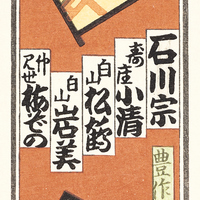 石川宗
寿庄小清
白山松鶴
白山岩美
仲見世梅ぞの
豊作